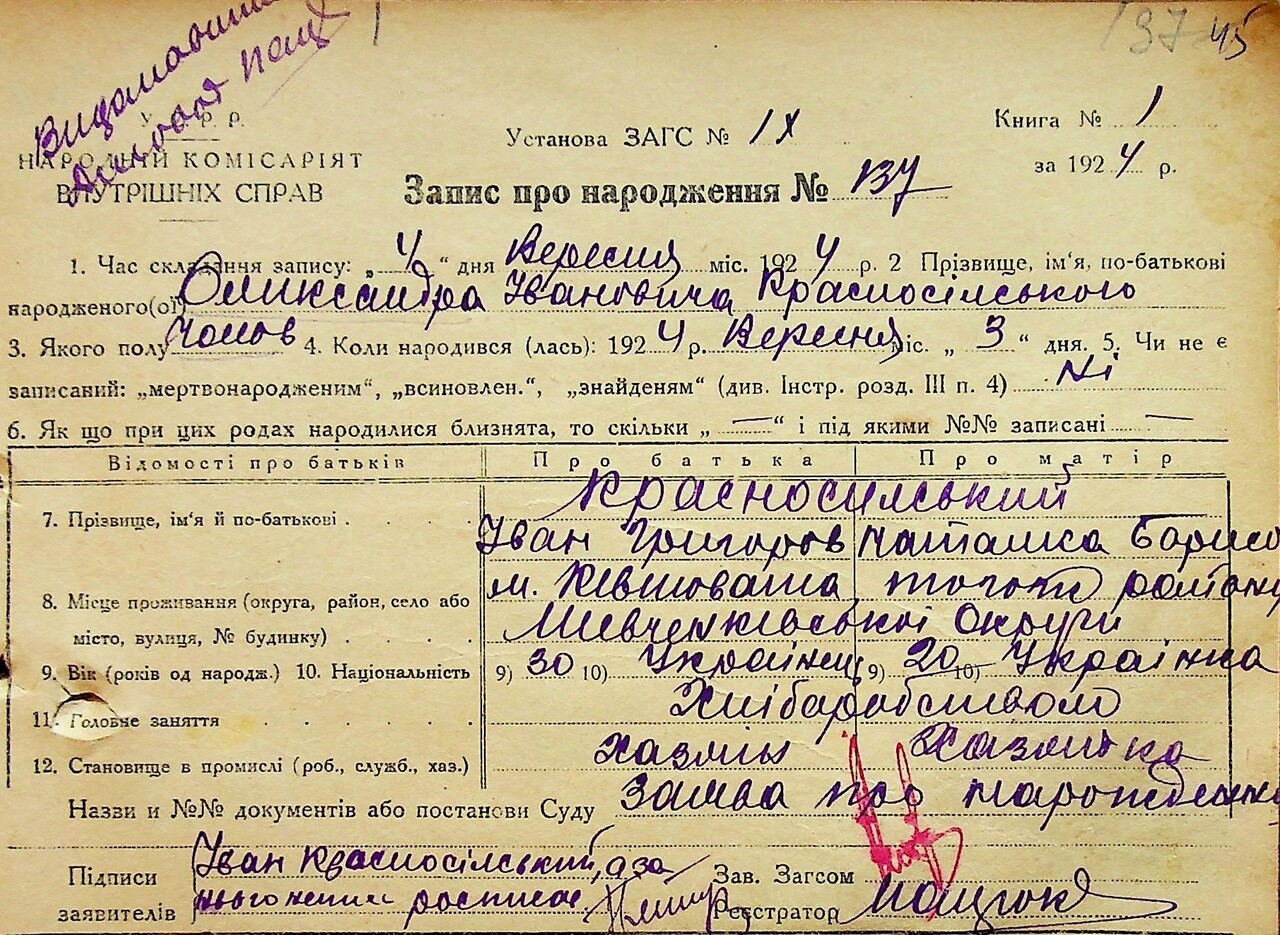 137 45
У. С. Р. Р.
НАРОДНІЙ КОМІСАРІЯТ
ВНУТРІШНІХ СПРАВ
Установа ЗАГС № IX
Книга № 1
за 1924 р.
Запис про народження № 137
1. Час складання запису: „4“ дня Вересня міс. 1924 р. 2 Прізвище, ім'я, по-батькові
народженого(ої) Олександра Івановича Красносілського
3. Якого полу Чолов 4. Коли народився (лась): 1924 р. Вересня міс. „ 3 “ дня. 5. Чи не є
записаний: „мертвонародженим“, „всиновлен.“, „знайденям“ (див. Інстр. розд. III п. 4) Ні
6. Як що при цих родах народилися близнята, то скільки „ — “ і під якими №№ записані —
Відомості про батьків Про батька Про матір
Красносилський
7. Прізвище, ім'я й по-батькові
Іван Григоров Наталка Борисо
м. Кевшовата, того ж району
8. Місце проживання (округа, район, село або
місто, вулиця, № будинку)
Шевченківської Округи
9. Вік (років од народж.) 10. Національність 9) 30 10) Українец 9) 20 10) Українка
11. Головне заняття Хліборобством
12. Становище в промислі (роб., служб., хаз.) Хазяїн Хазяйка
Назви и №№ документів або постанови Суду Заява про народження
Підписи
заявителів
Іван Красносілський, а за
нього неписм росписає
Зав. Загсом
Реєстратор